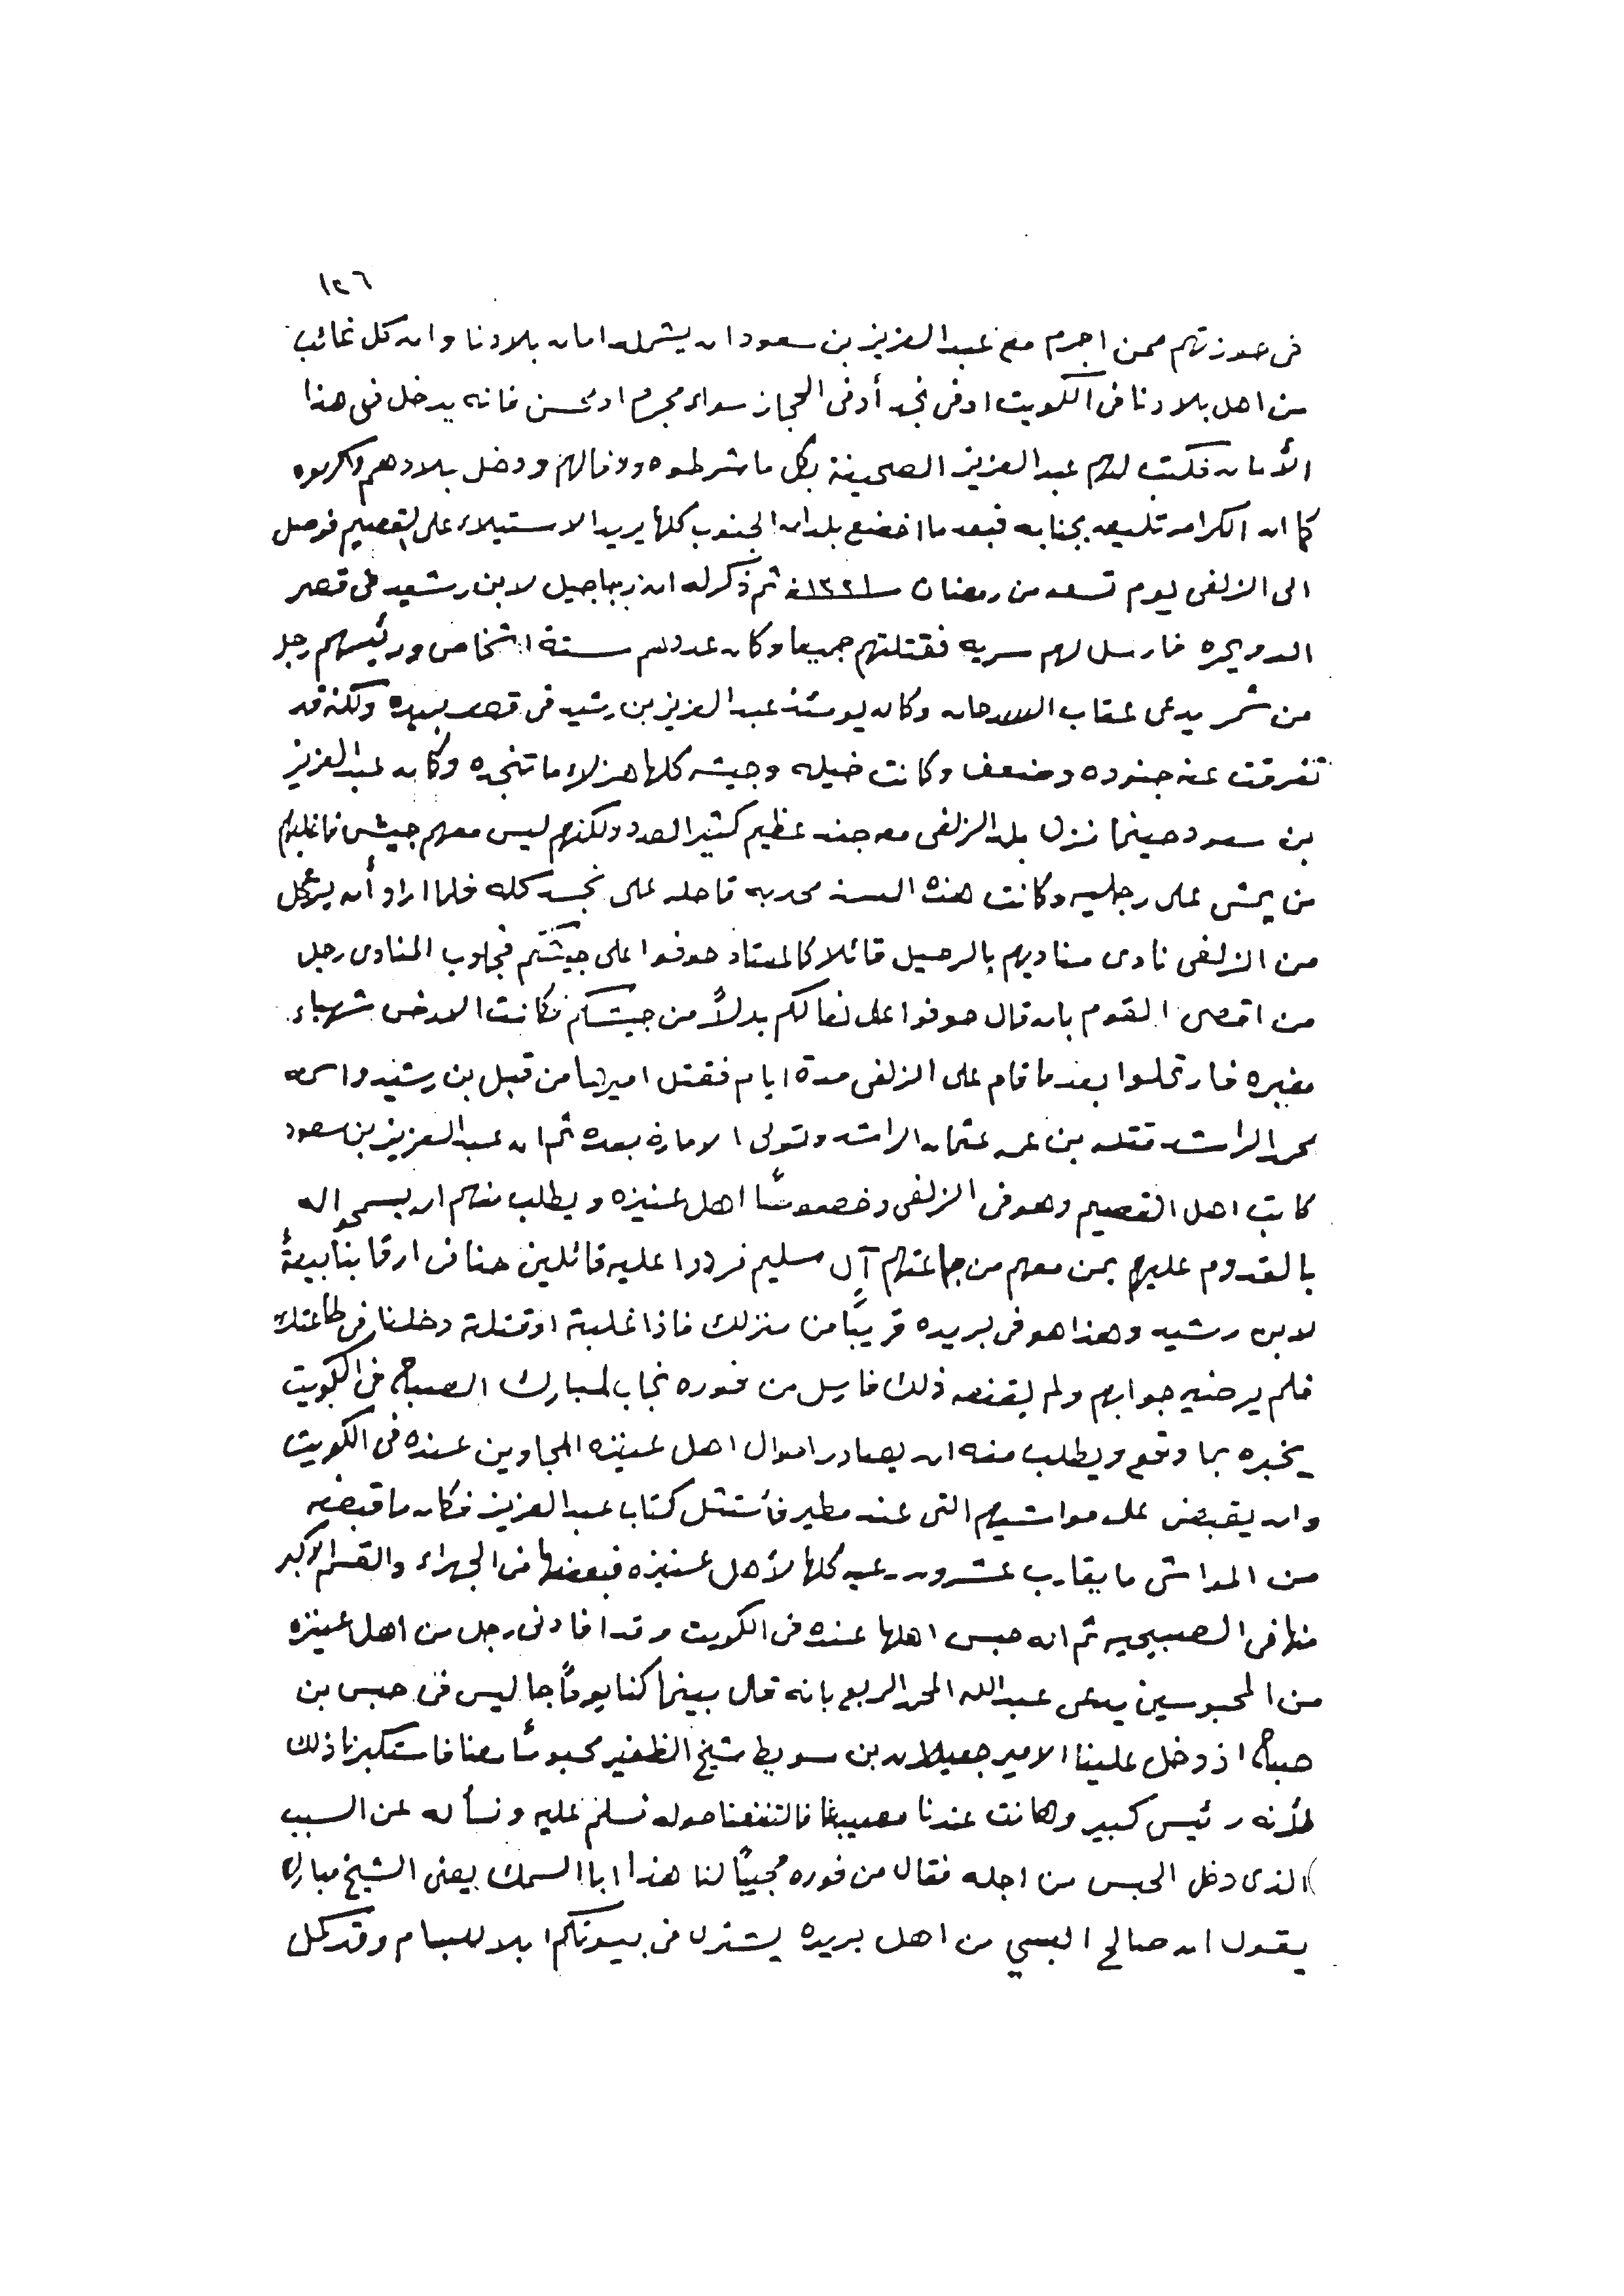 ١٢٦
فى حوزتهم ممن اجرم مع عبد العزيز بن سعود ان يشمله امان بلادنا وان كل غائب
من اهل بلادنا فى الكويت او فى نجد أو فى الحجاز سواء مجرم او محسن فانه يدخل فى هذا
الأمان فكتب لهم عبد العزيز الصحيفة بكل ما شرطوه ووفا لهم ودخل بلادهم واكرموه
كما ان الكرامه تليق بجنابه فبعد ما اخضع بلدان الجنوب كلها يريد الاستيلاء على القصيم فوصل
الى الزلفى ليوم تسعه من رمضان سنة ١٣٢١ه ثم ذكر له ان رجاجيل لابن رشيد فى قصر
الدويحره فارسل لهم سريه فقتلتهم جميعا وكان عددهم ستة اشخاص ورئيسهم رجل
من شمر يدعى عقاب السرحان وكان يومئذ عبد العزيز بن رشيد فى قصر بريده ولكنه قد
تفرقت عنه جنوده وضعف وكانت خيله وجيشه كلها هزلاء ما تنجده وكان عبد العزيز
بن سعود حينما نزل بلد الزلفى معه جند عظيم كثير العدد ولكنهم ليس معهم جيش فاغلبهم
من يمشى على رجليه وكانت هذه السنه مجدبه قاحله على نجد كله فلما اراد أن يرتحل
من الزلفى نادى مناديهم بالرحيل قائلا كالمعتاد حوفوا على جيشكم فجاوب المنادى رجل
من اقصى القوم بان قال حوفوا على نعالكم بدلاً من جيشكم فكانت الارض شهباء
مغبره فارتحلوا بعد ما قام على الزلفى مدة ايام فقتل اميرها من قبل بن رشيد واسمه
محمد الراشد قتله بن عمه عثمان الراشد وتولى الامارة بعده ثم ان عبد العزيز بن سعود
كاتب اهل القصيم وهو فى الزلفى وخصوصًا اهل عنيزه ويطلب منهم ان يسمحوا له
بالقدوم عليهم بمن معهم من جماعتهم آل سليم فردوا عليه قائلين حنا فى ارقابنا بيعةً
لابن رشيد وهذا هو فى بريده قريبًا من منزلك فاذا غلبة او قتلة دخلنا فى طاعتك
فلم يرضيه جوابهم ولم يقنعه ذلك فارسل من فوره نجاب لمبارك الصباح فى الكويت
يخبره بما وقع ويطلب منه ان يصادر اموال اهل عنيزه المجاوين عنده فى الكويت
وان يقبض على مواشيهم التى عند مطير فأمتثل كتاب عبد العزيز فكان ما قبضه
من المواشى ما يقارب عشرون رعيه كلها لأهل عنيزه فبعضها فى الجهراء والقسم الاكبر
منها فى الصبيحيه ثم انه حبس اهلها عنده فى الكويت وقد افادنى رجل من اهل عنيزه
من المحبوسين يدعى عبد الله المحمد الربع بانه قال بينما كنا يومًا جاليس فى حبس بن
صباح اذ دخل علينا الامير جعيلان بن سويط شيخ الظفير محبوسًا معنا فاستكبرنا ذلك
لأنه رئيس كبير وهانت عندنا مصيبتنا فالتففنا حوله نسلم عليه ونسأله عن السبب
الذى دخل الحبس من اجله فقال من فوره مجيبًا لنا هذا ابا السمك يعنى الشيخ مبارك
يقول ان صالح من اهل بريده يشترى فى بيوتكم ابلا للبسام وقد كمل